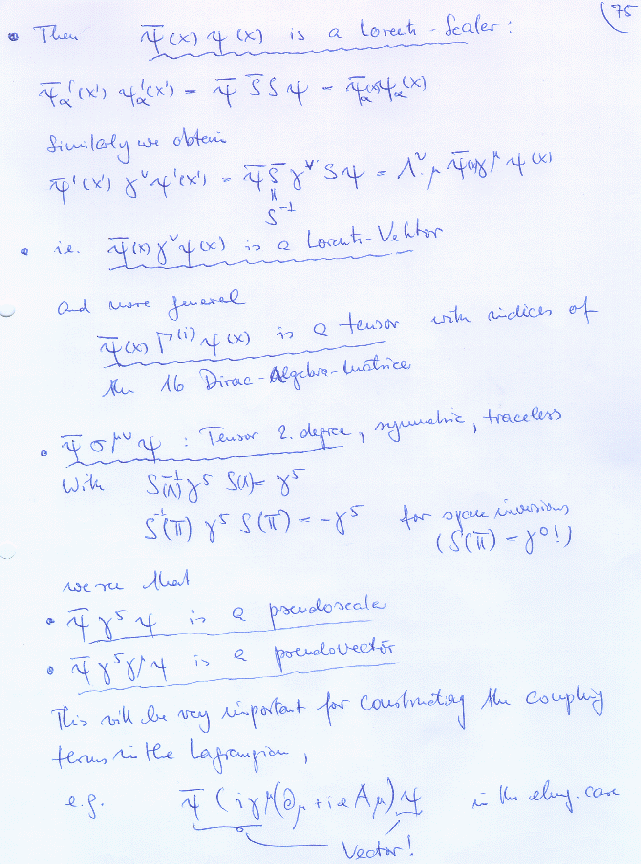 (75
• Then ψ̄(x) ψ(x) is a Lorentz-Scalar:
ψ̄'α(x') ψ'α(x') = ψ̄ S̄ S ψ = ψ̄α(x)ψα(x)
Similarly we obtain
ψ̄'(x') γ^ν ψ'(x') = ψ̄ S̄ γ^ν S ψ = Λ^ν_μ ψ̄(x)γ^μ ψ(x)
||
S^-1
• i.e. ψ̄(x) γ^ν ψ(x) is a Lorentz-Vektor
and more general
ψ̄(x) Γ^(i) ψ(x) is a tensor with indices of
the 16 Dirac-Algebra-Matrice
• ψ̄ σ^μν ψ : Tensor 2. degree, symmetric, traceless
With S^-1(Λ) γ^5 S(Λ) = γ^5
S^-1(π) γ^5 S(π) = -γ^5 for space inversions
(S(π) - γ^0!)
we see that
• ψ̄ γ^5 ψ is a pseudoscala
• ψ̄ γ^5 γ^μ ψ is a pseudovector
This will be very important for constructing the coupling
terms in the Lagrangian,
e.g. ψ̄ (i γ^μ(∂_μ + ie A_μ) ψ in the elmg. case
Vector!